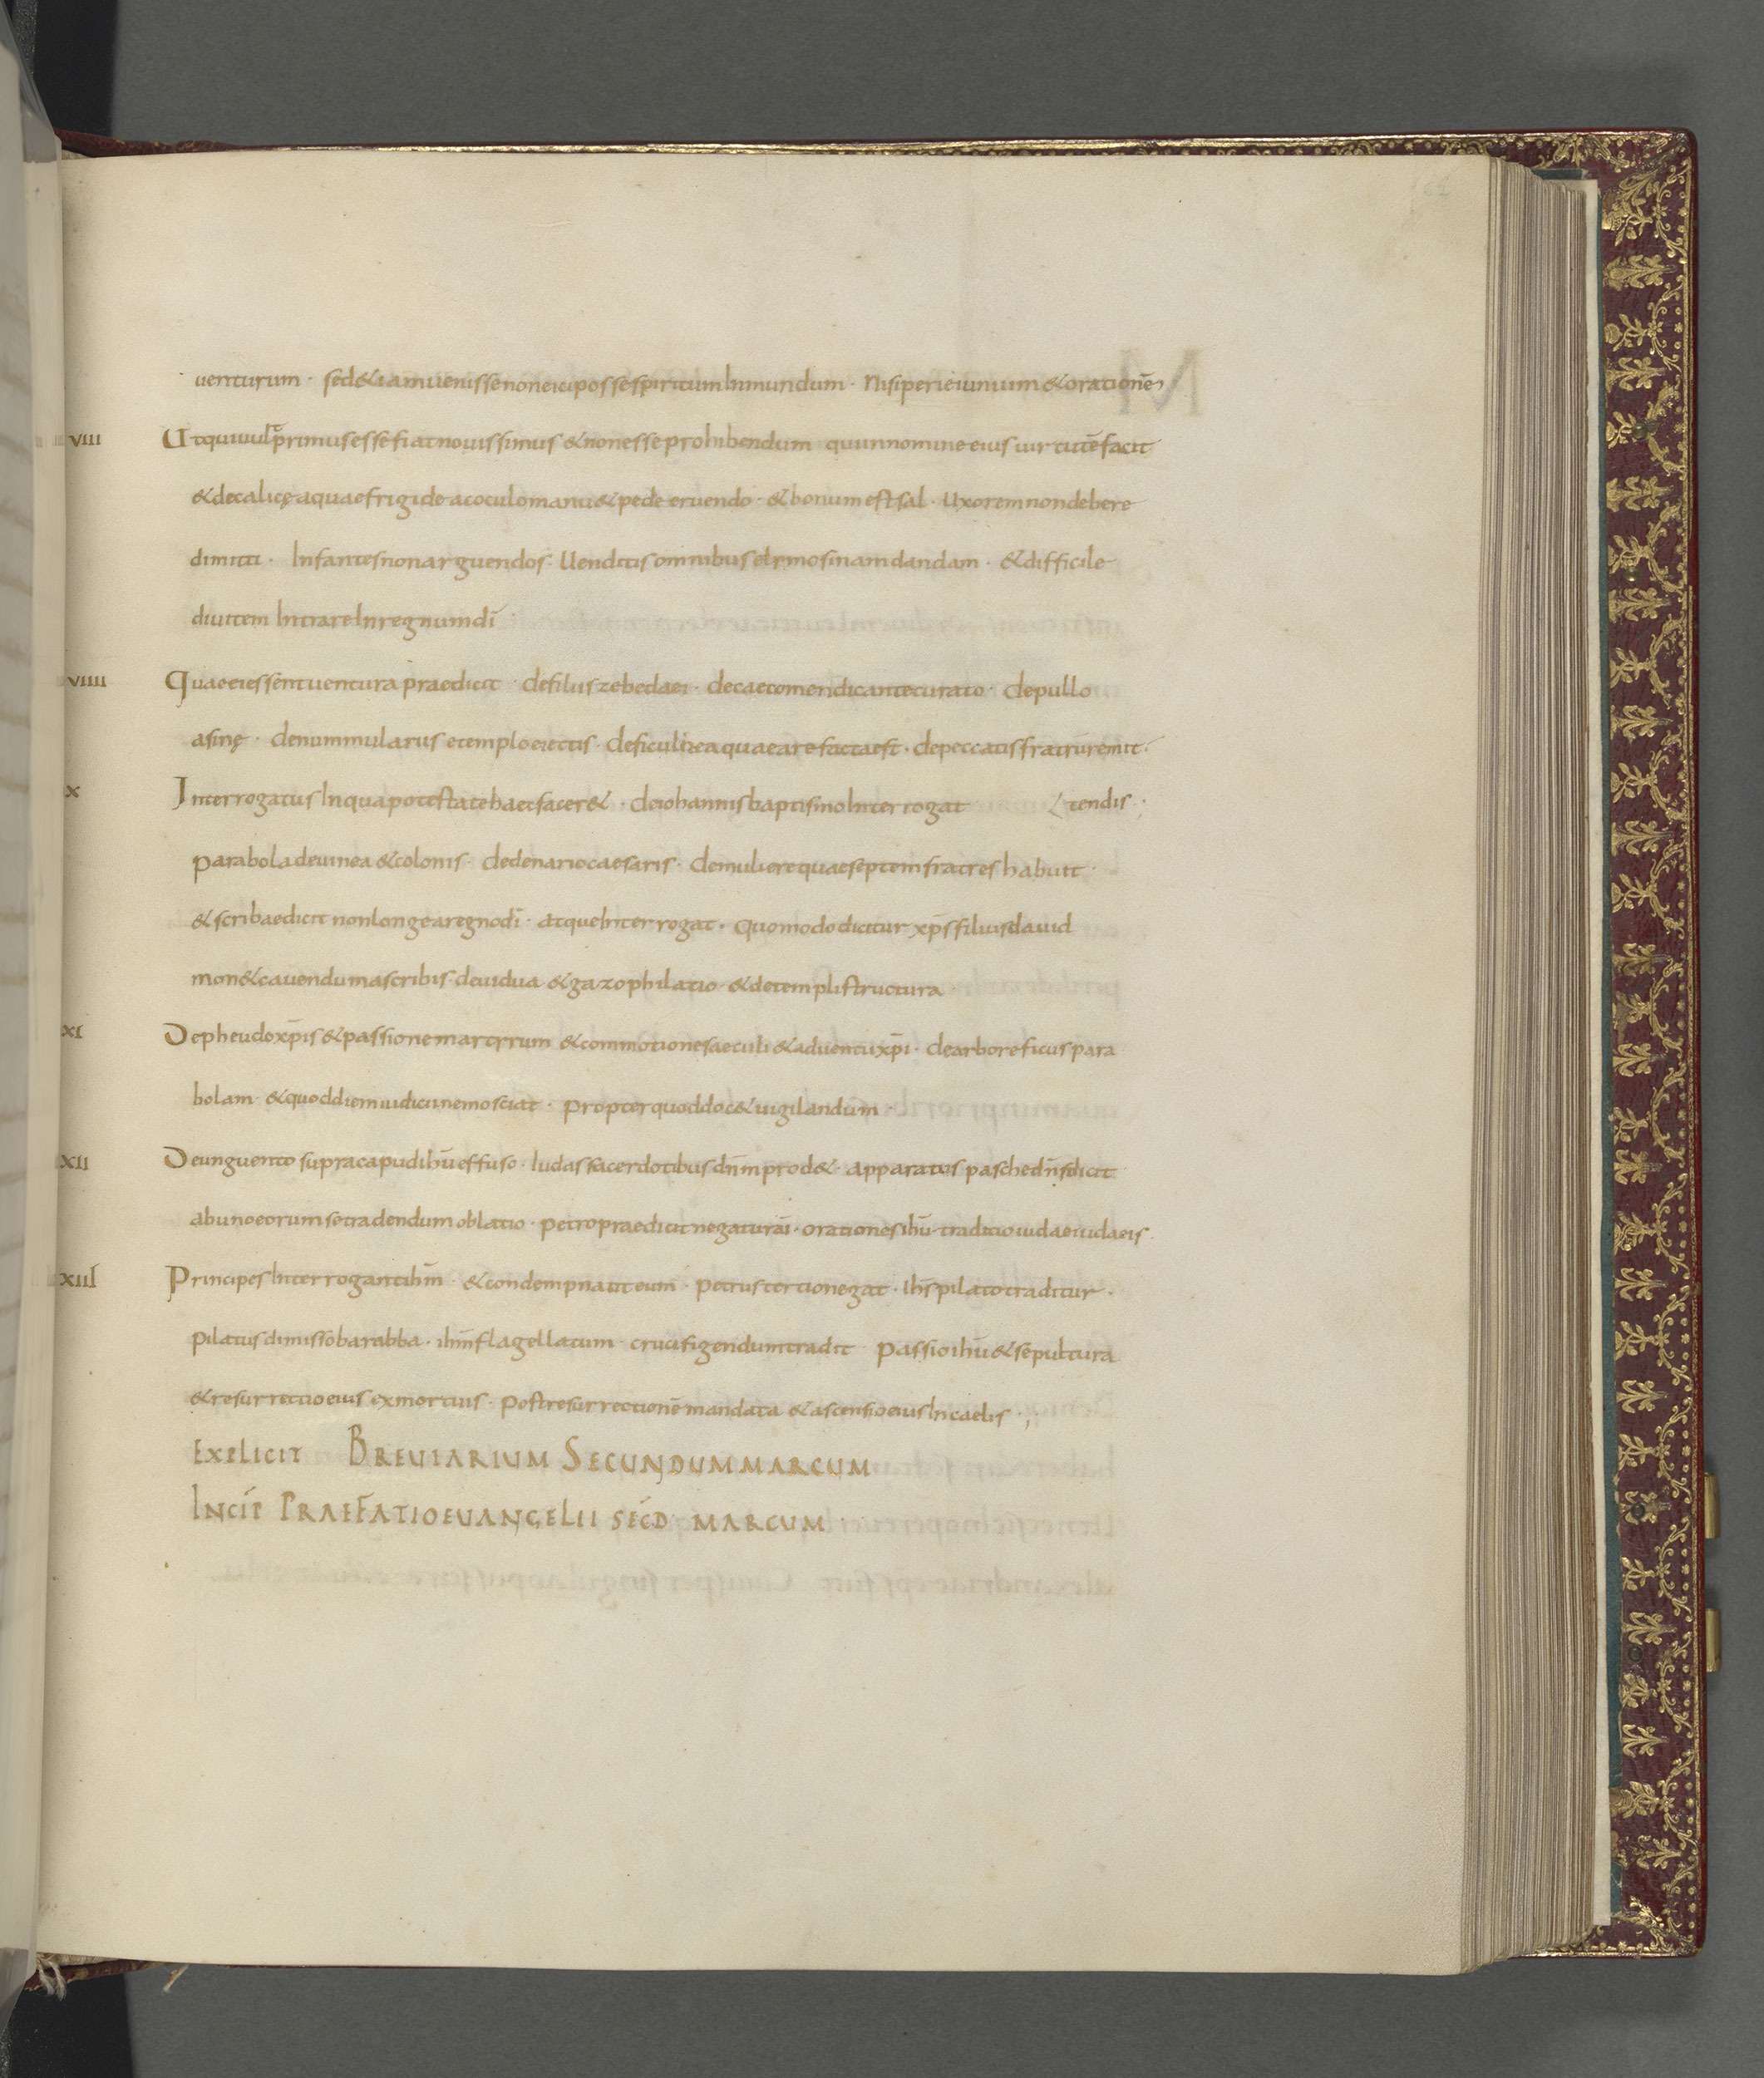 uenturum · sed&iamuenissenoneicipossespiritumInmundum · Nisiperieiunium&orationē
VIII Utquiuultprimusessefiatnouissimus &nonesseprohibendum quiinnomineeius uirtutēfacit
&decalicęaquaefrigide acoculomanu&pede eruendo · &bonumestsal · Uxoremnondebere
dimitti · Infantesnonarguendos · Uenditisomnibuselymosinamdandam · &difficile
diuitem IntrareInregnumdī
VIIII Quaeeiessentuenturapraedicit · defiliiszebedaei · decaecomendicantecurato · depullo
asinę · denummulariis etemploeiectis · deficulneaquaearefactaest · depeccatisfratrūremit
X InterrogatusInquapotestatehaecfacer& · deiohannisbaptismoInterrogat tendis ·;
Paraboladeuinea&colonis · dedenariocaesaris · demulierequaeseptemfratreshabuit
&scribaedicit nonlongearegnodī · atqueInterrogat · Quomododicitur xp̄sfiliusdauid
mon&cauendumascribis · deuidua &gazophilatio · &detemplistructura
XI Depheudoxp̄is&passionemartyrum &commotionesaeculi&aduentuxp̄i · dearboreficuspara
bolam &quoddiemiudiciinemosciat · Propterquoddoc&uigilandum ·
XII Deunguentosupracapudihūeffuso · Iudassacerdotibusdn̄mprod& · apparatus paschedn̄sdicit
abunoeorumsetradendumoblatio · petropraedicitnegaturū · orationesihū · traditioiudaeiudaeis
XIII PrincipesInterrogantihm̄ · &condempnauteum · petrustertionegat · Ihs̄pilatotraditur ·
Pilatusdimissobarabba · ihm̄flagellatum crucifigendumtradit Passioihū&sepultura
&resurrectioeius exmortuis · Postresurrectionēmandata &ascensioeiusIncaelis ·;
EXPLICIT BREUIARIUM SECUNDUMMARCUM
INCIP̄ PRAEFATIOEUANGELII SECD MARCUM